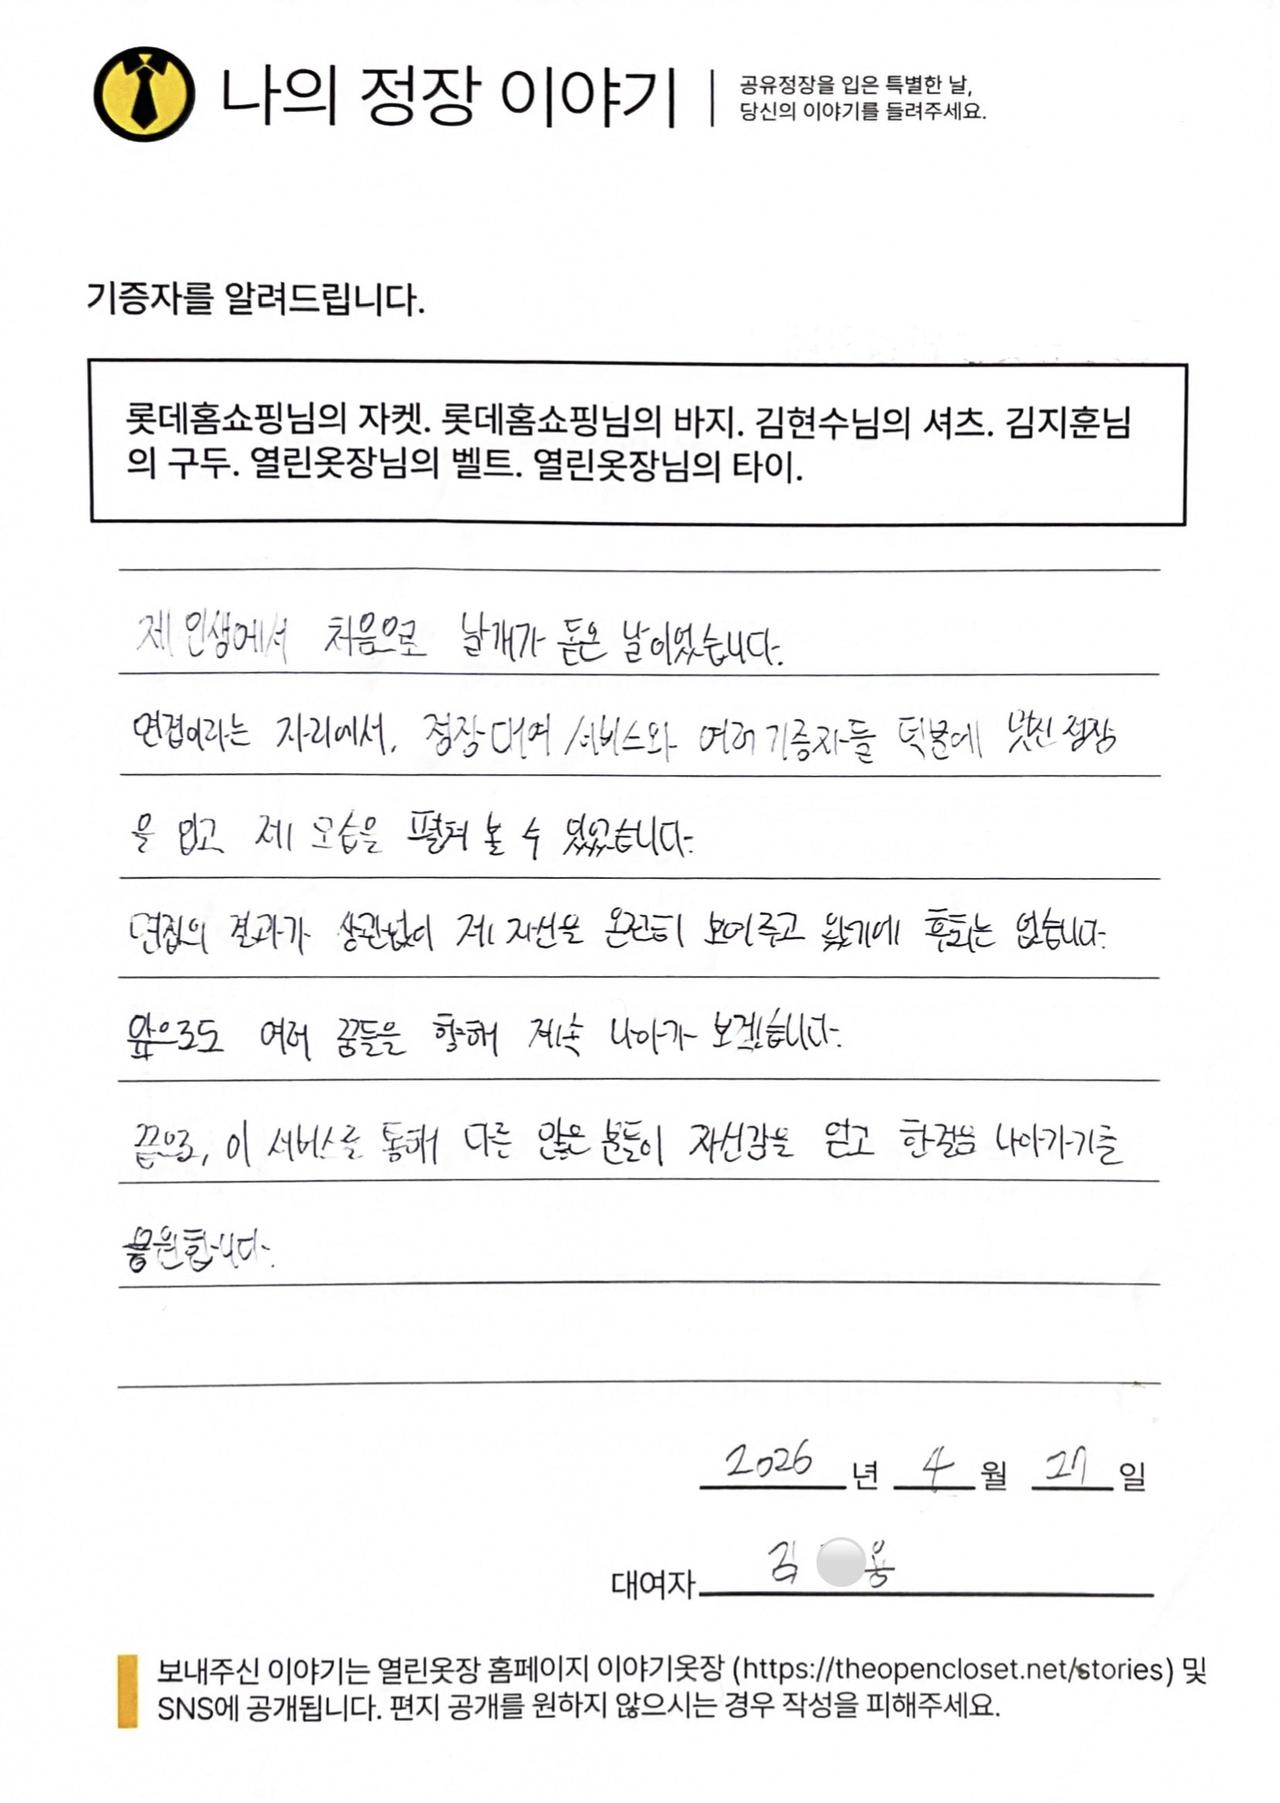 나의 정장 이야기
공유정장을 입은 특별한 날,
당신의 이야기를 들려주세요.
기증자를 알려드립니다.
롯데홈쇼핑님의 자켓. 롯데홈쇼핑님의 바지. 김현수님의 셔츠. 김지훈님
의 구두. 열린옷장님의 벨트. 열린옷장님의 타이.
제 인생에서 처음으로 날개가 돋은 날이었습니다.
면접이라는 자리에서, 정장 대여 서비스와 여러 기증자들 덕분에 멋진 정장
을 입고 제 모습을 펼쳐 볼 수 있었습니다.
면접의 결과가 상관없이 제 자신을 온전히 보여주고 왔기에 후회는 없습니다.
앞으로도 여러 꿈들을 향해 계속 나아가 보겠습니다.
끝으로, 이 서비스를 통해 다른 많은 분들이 자신감을 얻고 한걸음 나아가기를
응원합니다.
2026 년 4 월 27 일
대여자 김 용
보내주신 이야기는 열린옷장 홈페이지 이야기옷장 (https://theopencloset.net/stories) 및
SNS에 공개됩니다. 편지 공개를 원하지 않으시는 경우 작성을 피해주세요.